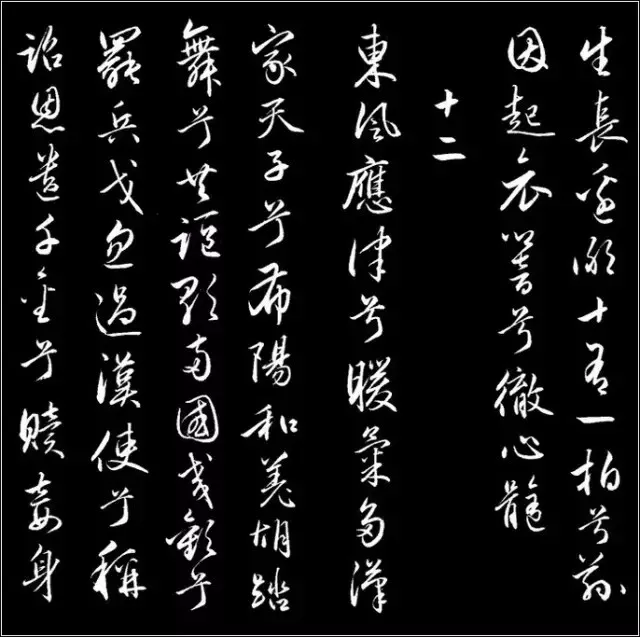 生長邊鄙十有一拍兮茲
因起哀響兮徹心髓
十二
東風應律兮暖氣多漢
家天子兮布陽和羌胡蹈
舞兮共謳歌兩國交歡兮
罷兵戈忽遇漢使兮稱
詔恩遣千金兮贖妾身